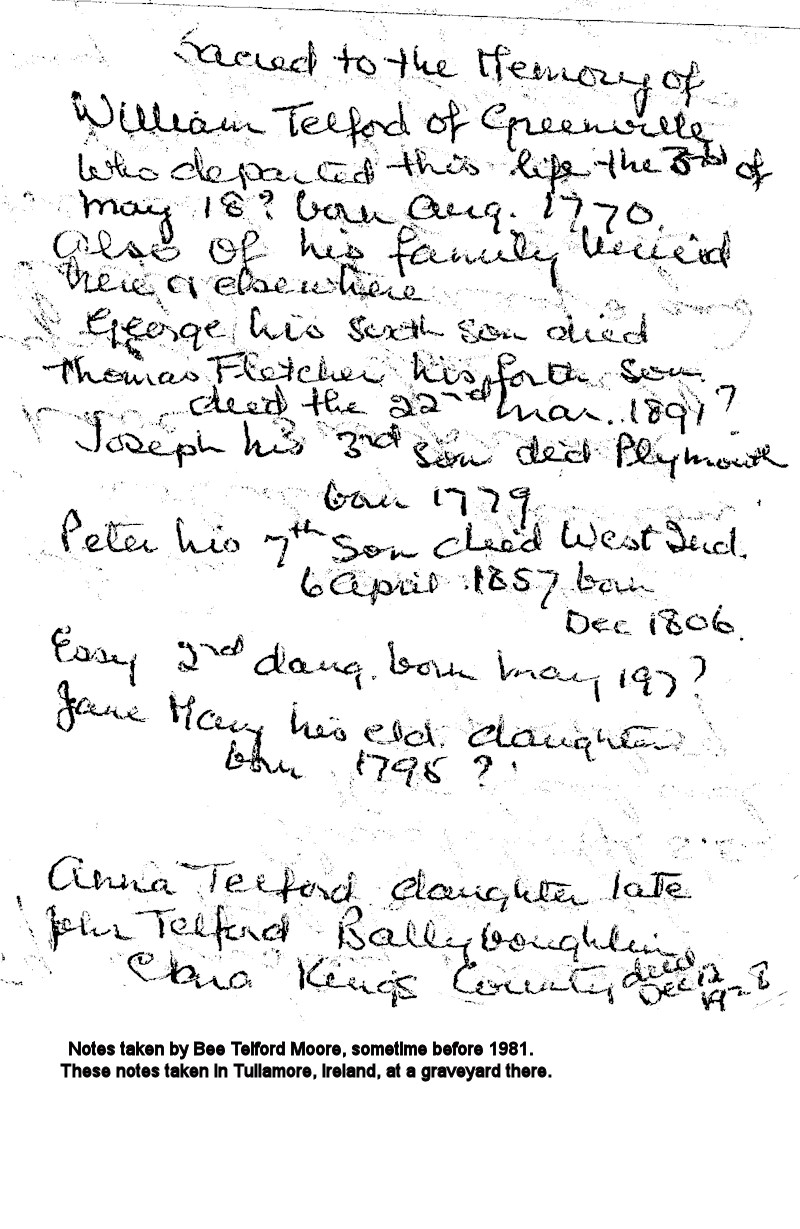 Sacred to the Memory of
William Telford of Greenville
who departed this life the 3rd of
may 18? born Aug. 1770.
Also of his family
here or elsewhere
George his sixth son died
Thomas Fletcher his forth son
died the 22nd mar. 1891?
Joseph his 3rd son died Plymouth
born 1779
Peter his 7th son died West Ind.
6 April 1857 born
Dec 1806.
Essy 2nd daug. born may 197?
Jane Mary his eld. daughter
born 1795 ?
Anna Telford daughter late
John Telford Ballyboughlin
Clara Kings County died
Dec 12
Notes taken by Bee Telford Moore, sometime before 1981.
These notes taken in Tullamore, Ireland, at a graveyard there.